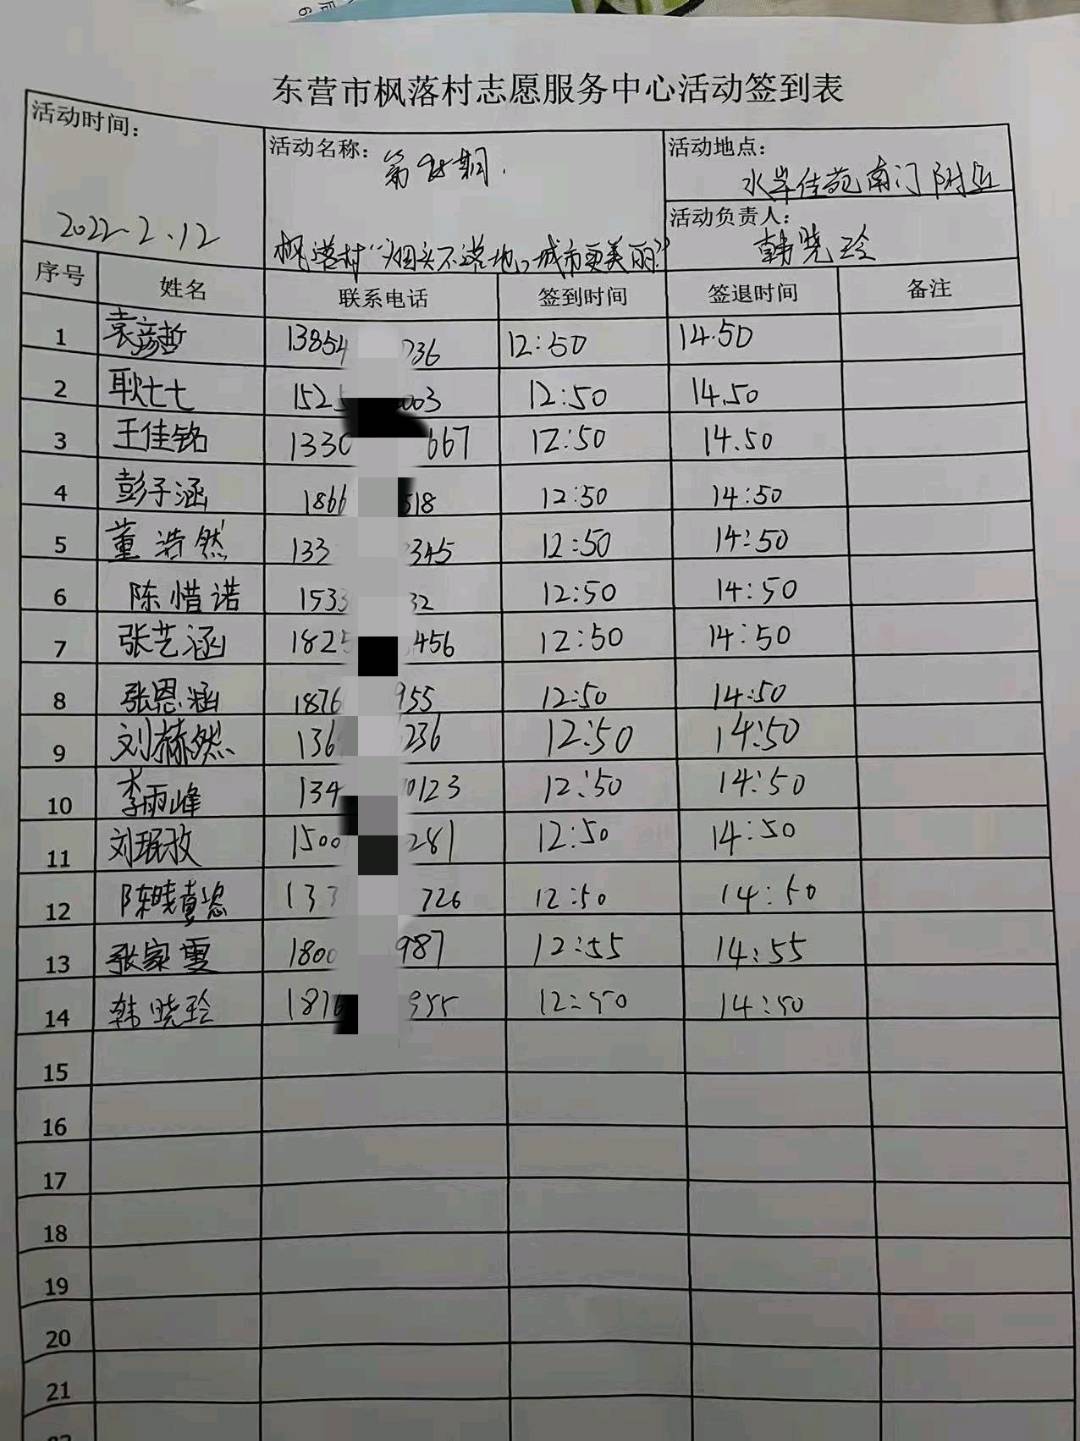 东营市枫落村志愿服务中心活动签到表
活动时间: 2022.2.12
活动名称: 第 期.
枫落村“烟头不落地,城市更美丽”
活动地点: 水岸佳苑南门附近
活动负责人: 韩晓玲
序号 姓名 联系电话 签到时间 签退时间 备注
1 袁彦哲 13854 036 12:50 14.50
2 耿七七 152 003 12:50 14.50
3 王佳铭 1330 667 12:50 14.50
4 彭子涵 1866 518 12:50 14:50
5 董浩然 133 345 12:50 14:50
6 陈惜诺 153 32 12:50 14:50
7 张艺涵 182 456 12:50 14:50
8 张恩涵 1876 955 12:50 14:50
9 刘赫然 136 236 12:50 14:50
10 李雨峰 134 0123 12:50 14:50
11 刘珉孜 1500 281 12:50 14:50
12 陈晓 133 726 12:50 14:50
13 张家雯 1800 987 12:55 14:55
14 韩晓玲 1876 955 12:50 14:50
15
16
17
18
19
20
21